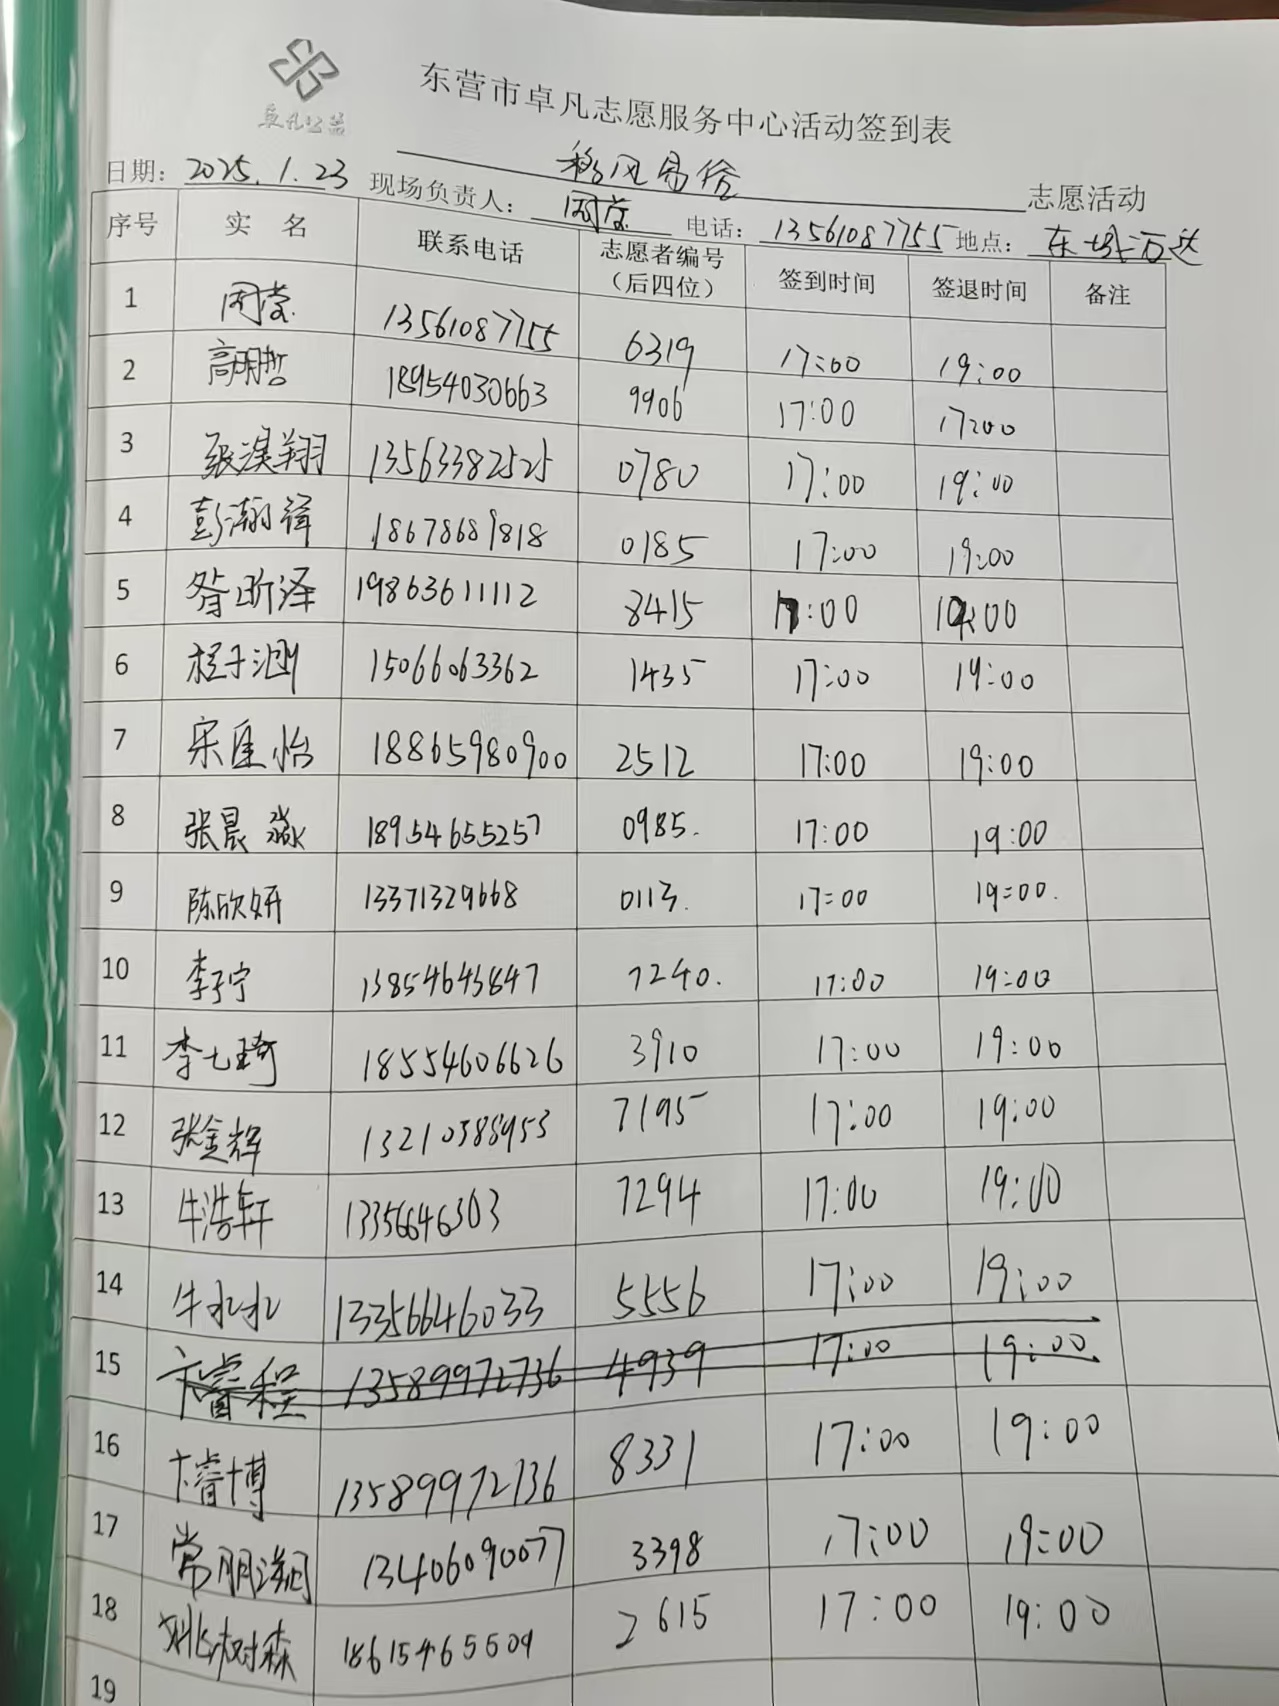 卓凡公益
东营市卓凡志愿服务中心活动签到表
移风易俗 志愿活动
日期: 2025.1.23 现场负责人: 周蒙 电话: 13561087755 地点: 东城万达
序号 实 名 联系电话 志愿者编号(后四位) 签到时间 签退时间 备注
1 周蒙 13561087755 6319 17:00 19:00
2 高明哲 18954030663 9906 17:00 17:00
3 张溟翔 13563382525 0780 17:00 19:00
4 彭瀚锋 18678689818 0185 17:00 19:00
5 昝昕泽 19863611112 8415 17:00 19:00
6 程子 15066063362 1435 17:00 19:00
7 宋佳怡 18865980900 2512 17:00 19:00
8 张晨淼 18954655257 0985. 17:00 19:00
9 陈欣妍 13371329668 0113. 17:00 19:00.
10 李子宁 13854643847 7240. 17:00 19:00
11 李七琦 18554606626 3910 17:00 19:00
12 张金辉 13210388953 7195 17:00 19:00
13 牛浩轩 1335646303 7294 17:00 19:00
14 牛水水 13356646033 5556 17:00 19:00
15 卞睿程 13589972736 4939 17:00 19:00
16 卞睿博 13589972736 8331 17:00 19:00
17 常朋 13406090077 3398 17:00 19:00
18 姚树森 18615465509 2615 17:00 19:00
19